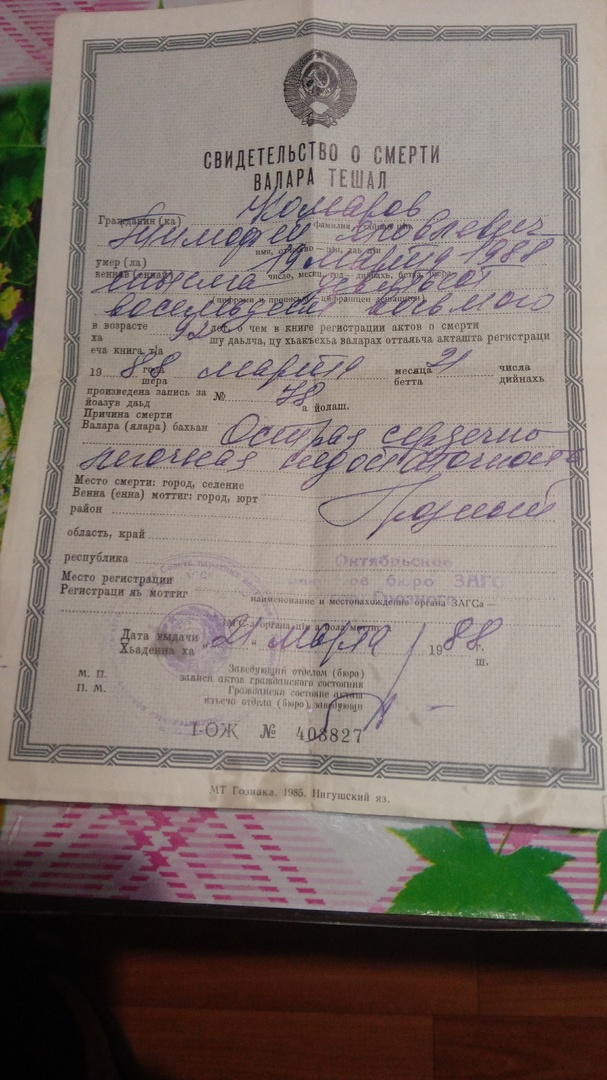 СВИДЕТЕЛЬСТВО О СМЕРТИ
ВАЛАРА ТЕШАЛ
Гражданин (ка) Комаров
Тимофей
умер (ла) 19 марта 1988
число, месяц, год — дийнахь, бетта, шера
тысяча девятьсот
восемьдесят восьмого
в возрасте 92 лет, о чем в книге регистрации актов о смерти
ха шу даьлча, цу хьакъехьа валарах оттаяьча акташта регистраци
еча книга т1а
19 88 года марта месяца 21 числа
шера бетта дийнахь
произведена запись за № 78
йоазув даьд а йолаш.
Причина смерти
Валара (ялара) бахьан Острая сердечно
легочная недостаточность
Место смерти: город, селение
Венна (енна) моттиг: город, юрт Грозный
район
область, край
республика Октябрьское
бюро ЗАГС
Место регистрации
Регистраци яь моттиг
наименование и местонахождение органа ЗАГСа —
Дата выдачи
Хьаденна ха „21“ марта 1988 г.
ш.
Заведующий отделом (бюро)
М. П. записи актов гражданского состояния
П. М. Граждански состояне акташ
язъеча отдела (бюро) заведующи
I-ОЖ № 408827
МТ Гознака. 1985. Ингушский яз.